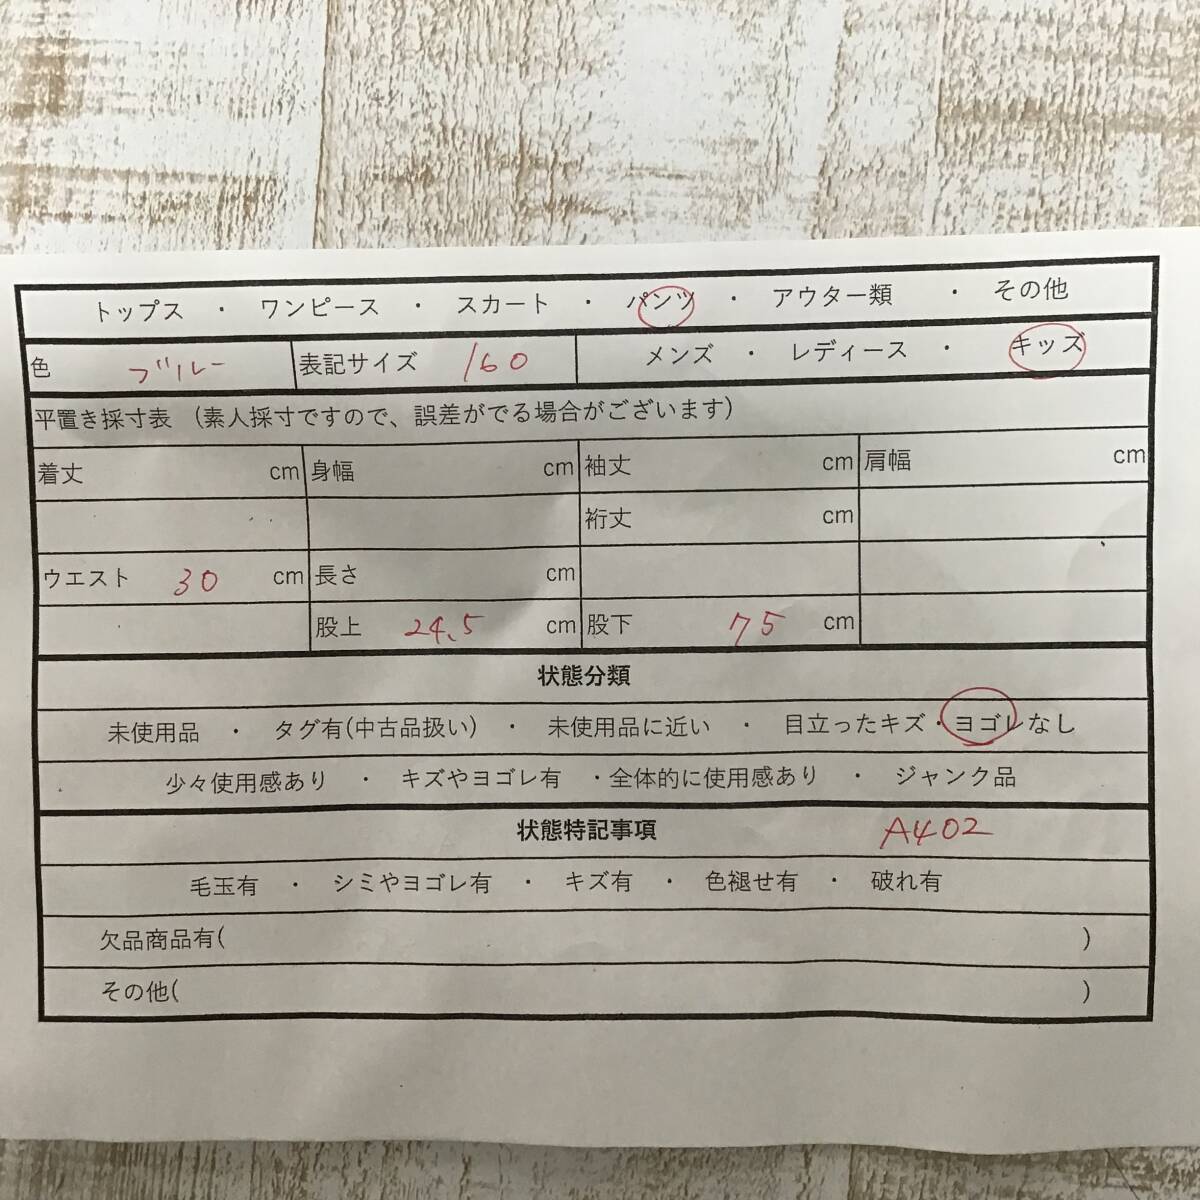 トップス ・ ワンピース ・ スカート ・ パンツ ・ アウター類 ・ その他
色 ブルー 表記サイズ 160 メンズ ・ レディース ・ キッズ
平置き採寸表 (素人採寸ですので、誤差がでる場合がございます)
着丈 cm 身幅 cm 袖丈 cm 肩幅 cm
裄丈 cm
ウエスト 30 cm 長さ cm
股上 24.5 cm 股下 75 cm
状態分類
未使用品 ・ タグ有(中古品扱い) ・ 未使用品に近い ・ 目立ったキズ・ヨゴレなし
少々使用感あり ・ キズやヨゴレ有 ・全体的に使用感あり ・ ジャンク品
状態特記事項 A402
毛玉有 ・ シミやヨゴレ有 ・ キズ有 ・ 色褪せ有 ・ 破れ有
欠品商品有( )
その他( )